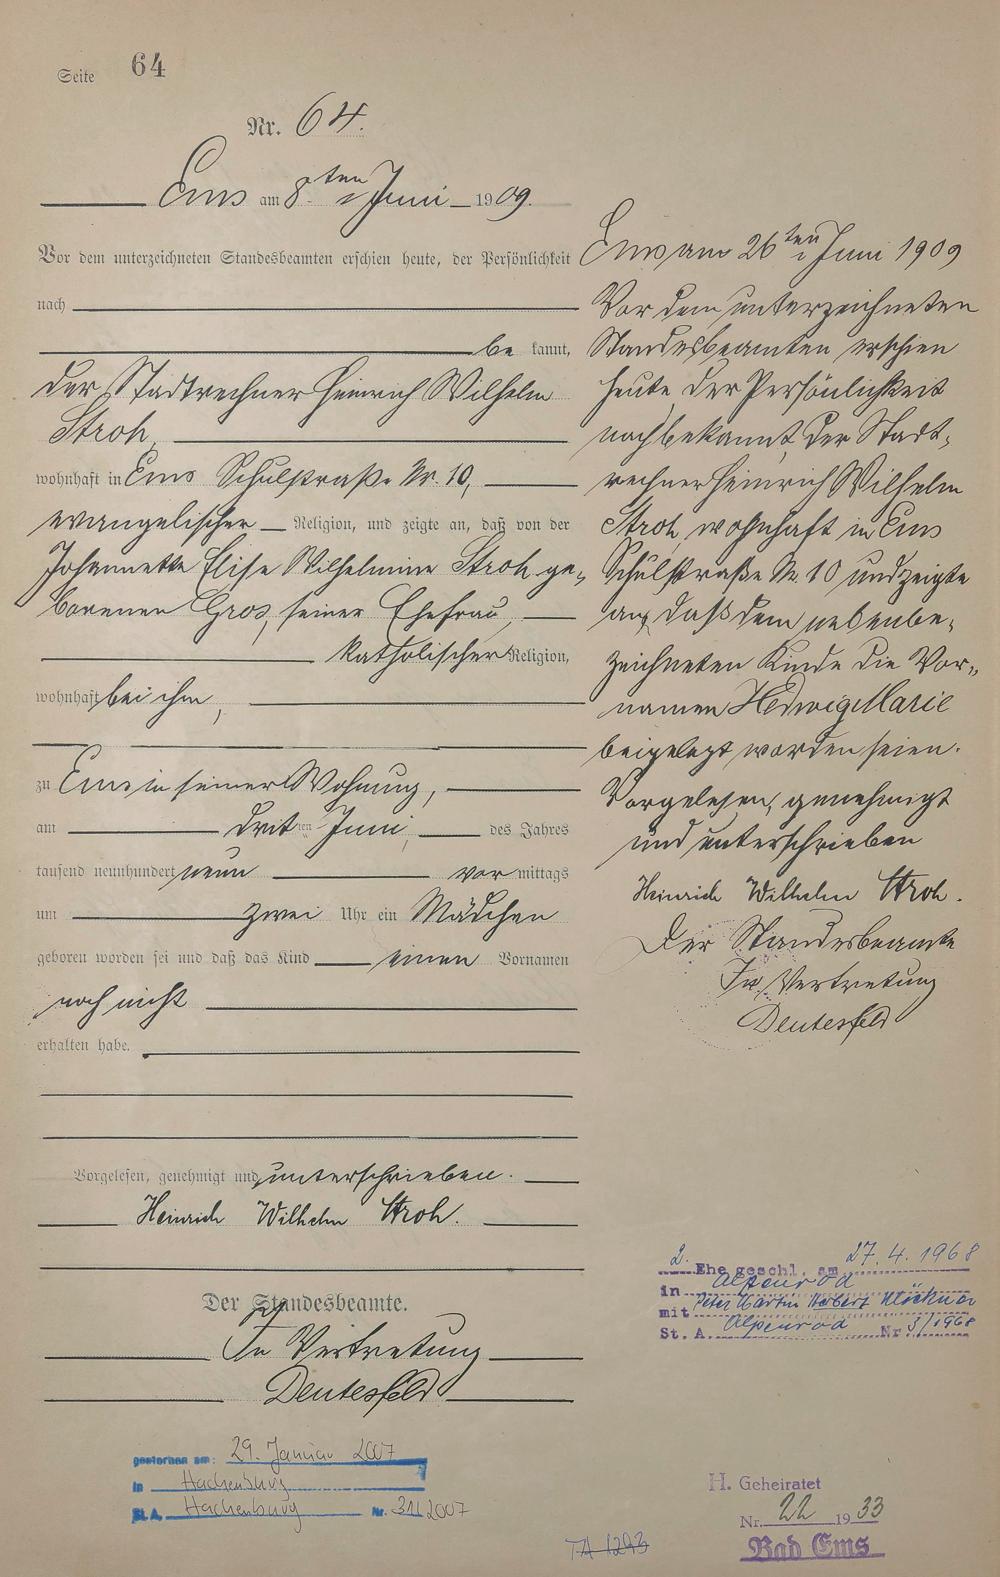 Seite 64
Nr. 64.
Ems am 8ten Juni 1909.
Vor dem unterzeichneten Standesbeamten erschien heute, der Persönlichkeit
nach
be kannt,
der Stadtrechner Heinrich Wilhelm
Stroh,
wohnhaft in Ems Schulstraße Nr. 10,
evangelischer Religion, und zeigte an, daß von der
Johannette Elise Wilhelmine Stroh ge-
borenen Gros, seiner Ehefrau,
katholischer Religion,
wohnhaft bei ihm,
zu Ems in seiner Wohnung,
am dritten Juni, des Jahres
tausend neunhundert neun vor mittags
um zwei Uhr ein Mädchen
geboren worden sei und daß das Kind einen Vornamen
noch nicht
erhalten habe.
Vorgelesen, genehmigt und unterschrieben.
Heinrich Wilhelm Stroh.
Der Standesbeamte.
In Vertretung
Deutesfeld
gestorben am: 29. Januar 2007
in Hachenburg
St.A. Hachenburg Nr. 31/2007
Ems am 26ten Juni 1909
Vor dem unterzeichneten
Standesbeamten erschien
heute der Persönlichkeit
nach bekannt, der Stadt-
rechner Heinrich Wilhelm
Stroh, wohnhaft in Ems
Schulstraße Nr 10 und zeigte
an, daß dem nebenbe-
zeichneten Kinde die Vor-
namen Hedwig Marie
beigelegt worden seien.
Vorgelesen, genehmigt
und unterschrieben
Heinrich Wilhelm Stroh.
Der Standesbeamte
In Vertretung
Deutesfeld
2. Ehe geschl. am 27.4.1968
in Alpenrod
mit Peter Martin Herbert Klöckner
St. A. Alpenrod Nr 3/1968
H. Geheiratet
Nr. 22 1933
Bad Ems
TA 1293